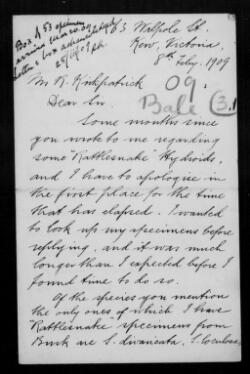 Box of 53 specimens
63 Walpole St.
Kew, Victoria.
8th Feby. 1909
Mr R. Kirkpatrick
09.
Bale (3.)
Dear Sir.
Some months since
you wrote to me regarding
some "Rattlesnake" Hydroids,
and I have to apologise in
the first place for the time
that has elapsed. I wanted
to look up my specimens before
replying, and it was much
longer than I expected before I
found time to do so.
Of the species you mention
the only ones of which I have
"Rattlesnake" specimens from
Busk are S. divaricata, S. loculosa,